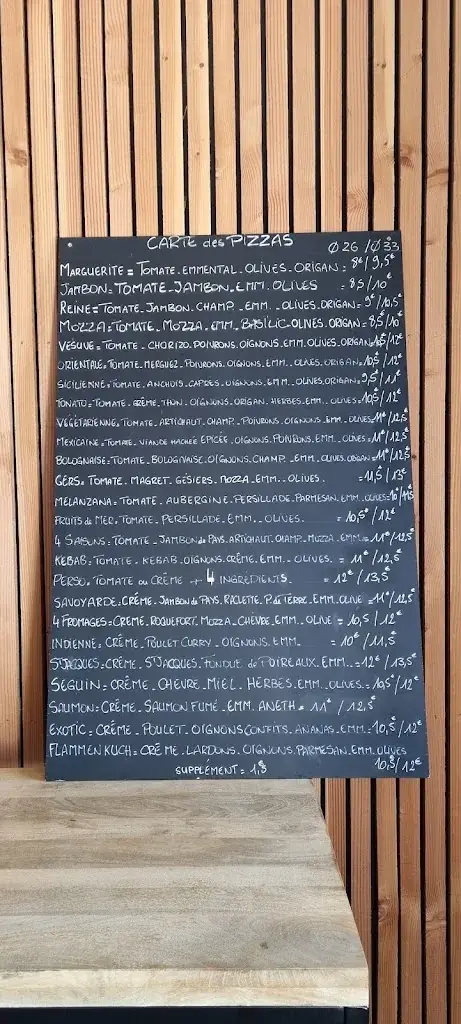 CARTE des PIZZAS Ø 26 / Ø 33
MARGUERITE = TOMATE. EMMENTAL. OLIVES. ORIGAN = 8€ / 9,5€
JAMBON = TOMATE. JAMBON. EMM. OLIVES = 8,5 / 10€
REINE = TOMATE. JAMBON. CHAMP. EMM. OLIVES. ORIGAN = 9€ / 10,5€
MOZZA = TOMATE. MOZZA. EMM. BASILIC. OLIVES. ORIGAN = 8,5 / 10€
VÉSUVE = TOMATE. CHORIZO. POIVRONS. OIGNONS. EMM. OLIVES. ORIGAN = 10,5 / 12€
ORIENTALE = TOMATE. MERGUEZ. POIVRONS. OIGNONS. EMM. OLIVES. ORIGAN = 10,5 / 12€
SICILIENNE = TOMATE. ANCHOIS. CAPRES. OIGNONS. EMM. OLIVES. ORIGAN = 9,5 / 11€
TONATO = TOMATE. CRÈME. THON. OIGNONS. ORIGAN. HERBES. EMM. OLIVES = 10,5 / 12€
VÉGÉTARIENNE. TOMATE. ARTICHAUT. CHAMP. POIVRONS. OIGNONS. EMM. OLIVES = 11€ / 12,5€
MEXICAINE = TOMATE. VIANDE HACHÉE EPICÉE. OIGNONS. POIVRONS. EMM. OLIVES = 11€ / 12,5€
BOLOGNAISE = TOMATE. BOLOGNAISE. OIGNONS. CHAMP. EMM. OLIVES. ORIGAN = 11€ / 12,5€
GERS = TOMATE. MAGRET. GÉSIERS. MOZZA. EMM. OLIVES. = 11,5 / 13€
MELANZANA = TOMATE. AUBERGINE. PERSILLADE. PARMESAN. EMM. OLIVES = 10€ / 11,5€
FRUITS de MER = TOMATE. PERSILLADE. EMM. OLIVES. = 10,5€ / 12€
4 SAISONS = TOMATE. JAMBON de PAYS. ARTICHAUT. CHAMP. MOZZA. EMM. = 11€ / 12,5€
KEBAB = TOMATE. KEBAB. OIGNONS. CRÈME. EMM. OLIVES. = 11€ / 12,5€
PERSO = TOMATE ou CRÈME + 4 INGRÉDIENTS. = 12€ / 13,5€
SAVOYARDE = CRÈME. JAMBON de PAYS. RACLETTE. P. de TERRE. EMM. OLIVE = 11€ / 12,5€
4 FROMAGES = CRÈME. ROQUEFORT. MOZZA. CHÈVRE. EMM. OLIVE = 10,5 / 12€
INDIENNE = CRÈME. POULET CURRY. OIGNONS. EMM. = 10€ / 11,5€
ST JACQUES = CRÈME. ST JACQUES. FONDUE de POIREAUX. EMM. = 12€ / 13,5€
SEGUIN = CRÈME. CHÈVRE. MIEL. HERBES. EMM. OLIVES = 10,5€ / 12€
SAUMON = CRÈME. SAUMON FUMÉ. EMM. ANETH = 11€ / 12,5€
EXOTIC = CRÈME. POULET. OIGNONS CONFITS. ANANAS. EMM. = 10,5€ / 12€
FLAMMENKUCH = CRÈME. LARDONS. OIGNONS. PARMESAN. EMM. OLIVES 10,5€ / 12€
SUPPLÉMENT = 1,5€